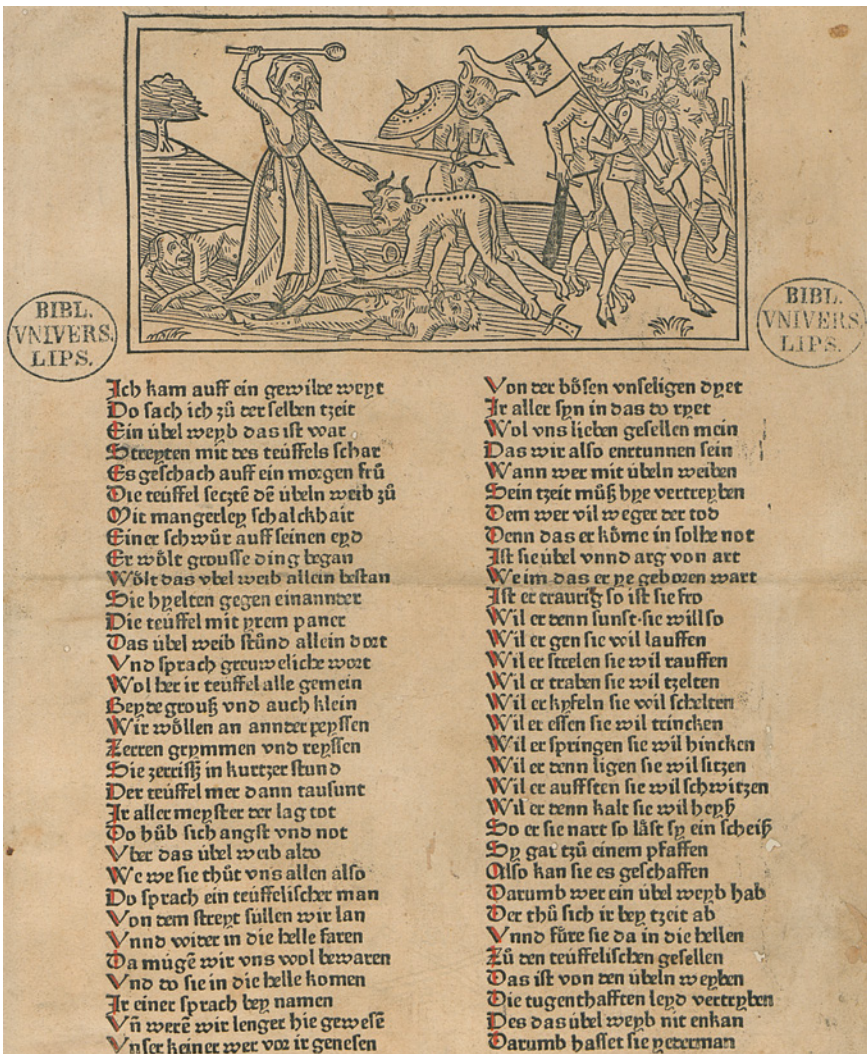 BIBL.
VNIVERS.
LIPS.
BIBL.
VNIVERS
LIPS.
Ich kam auff ein gewilde weyt
Do sach ich zů der selben tzeit
Ein übel weyb das ist war
Streyten mit des teüffels schar
Es geschach auff ein morgen frů
Die teüffel secztē dē übeln weib zů
Mit mangerley schalckhait
Einer schwůr auff seinen eyd
Er wölt grousse ding began
Wölt das vbel weib allein bestan
Sie hyelten gegen einannder
Die teüffel mit yrem paner
Das übel weib stůnd allein dort
Vnd sprach greuweliche wort
Wol her ir teuffel alle gemein
Beyde grouß vnd auch klein
Wir wöllen an annder peyssen
Zerren grymmen vnd reyssen
Sie zerriß in kurtzer stund
Der teüffel mer dann tausunt
Ir aller meyster der lag tot
Do hůb sich angst vnd not
Vber das übel weib aldo
We we sie thüt vns allen also
Do sprach ein teüffelischer man
Von dem streyt süllen wir lan
Vnnd wider in die helle faren
Da mügē wir vns wol bewaren
Vnd do sie in die helle komen
Ir einer sprach bey namen
Vn̄ werē wir lenger hie gewesē
Vnser keiner wer vor ir genesen
Von der bösen vnseligen dyet
Ir aller syn in das do ryet
Wol vns lieben gesellen mein
Das wir also enrtunnen sein
Wann wer mit übeln weiben
Sein tzeit můß hye vertreyben
Dem wer vil weger der tod
Denn das er köme in solhe not
Ist sie übel vnnd arg von art
We im das er ye geboren wart
Ist er traurig so ist sie fro
Wil er denn sunst·sie will so
Wil er gen sie wil lauffen
Wil er strelen sie wil rauffen
Wil er traben sie wil tzelten
Wil er kyfeln sie wil schelten
Wil er essen sie wil trincken
Wil er springen sie wil hincken
Wil er denn ligen sie wil sitzen
Wil er auffsten sie wil schwitzen
Wil er denn kalt sie wil heyß
So er sie nart so läst sy ein scheiß
Sy gat tzů einem pfaffen
Also kan sie es geschaffen
Darumb wer ein übel weyb hab
Der thů sich ir bey tzeit ab
Vnnd füre sie da in die hellen
Zů den teüffelischen gesellen
Das ist von den übeln weyben
Die tugenthafften leyd vertryben
Des das übel weyb nit enkan
Darumb hasset sie yederman